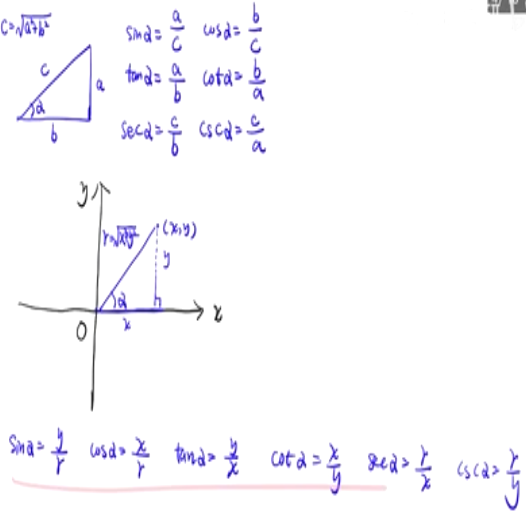 c=√a²+b²
sinα=a/c cosα=b/c
c a tanα=a/b cotα=b/a
α
b secα=c/b cscα=c/a
y
r=√x²+y² (x,y)
y
α
x x
O
sinα=y/r cosα=x/r tanα=y/x cotα=x/y secα=r/x cscα=r/y